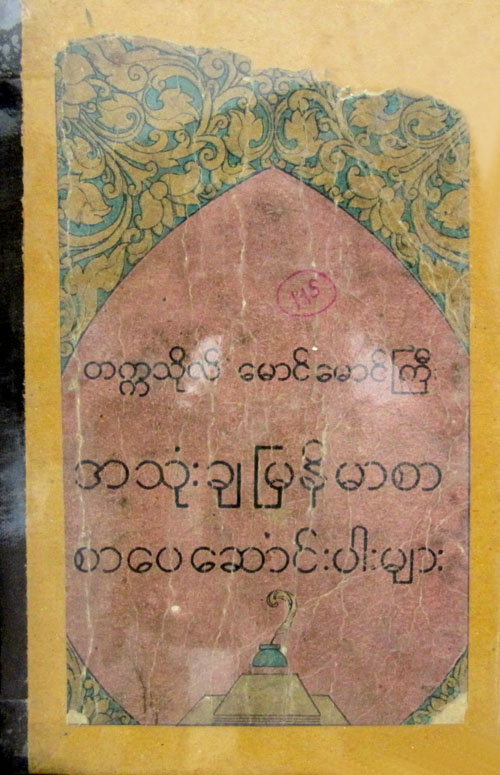 115
တက္ကသိုလ် မောင်မောင်ကြီး
အသုံးချမြန်မာစာ
စာပေဆောင်းပါးများ